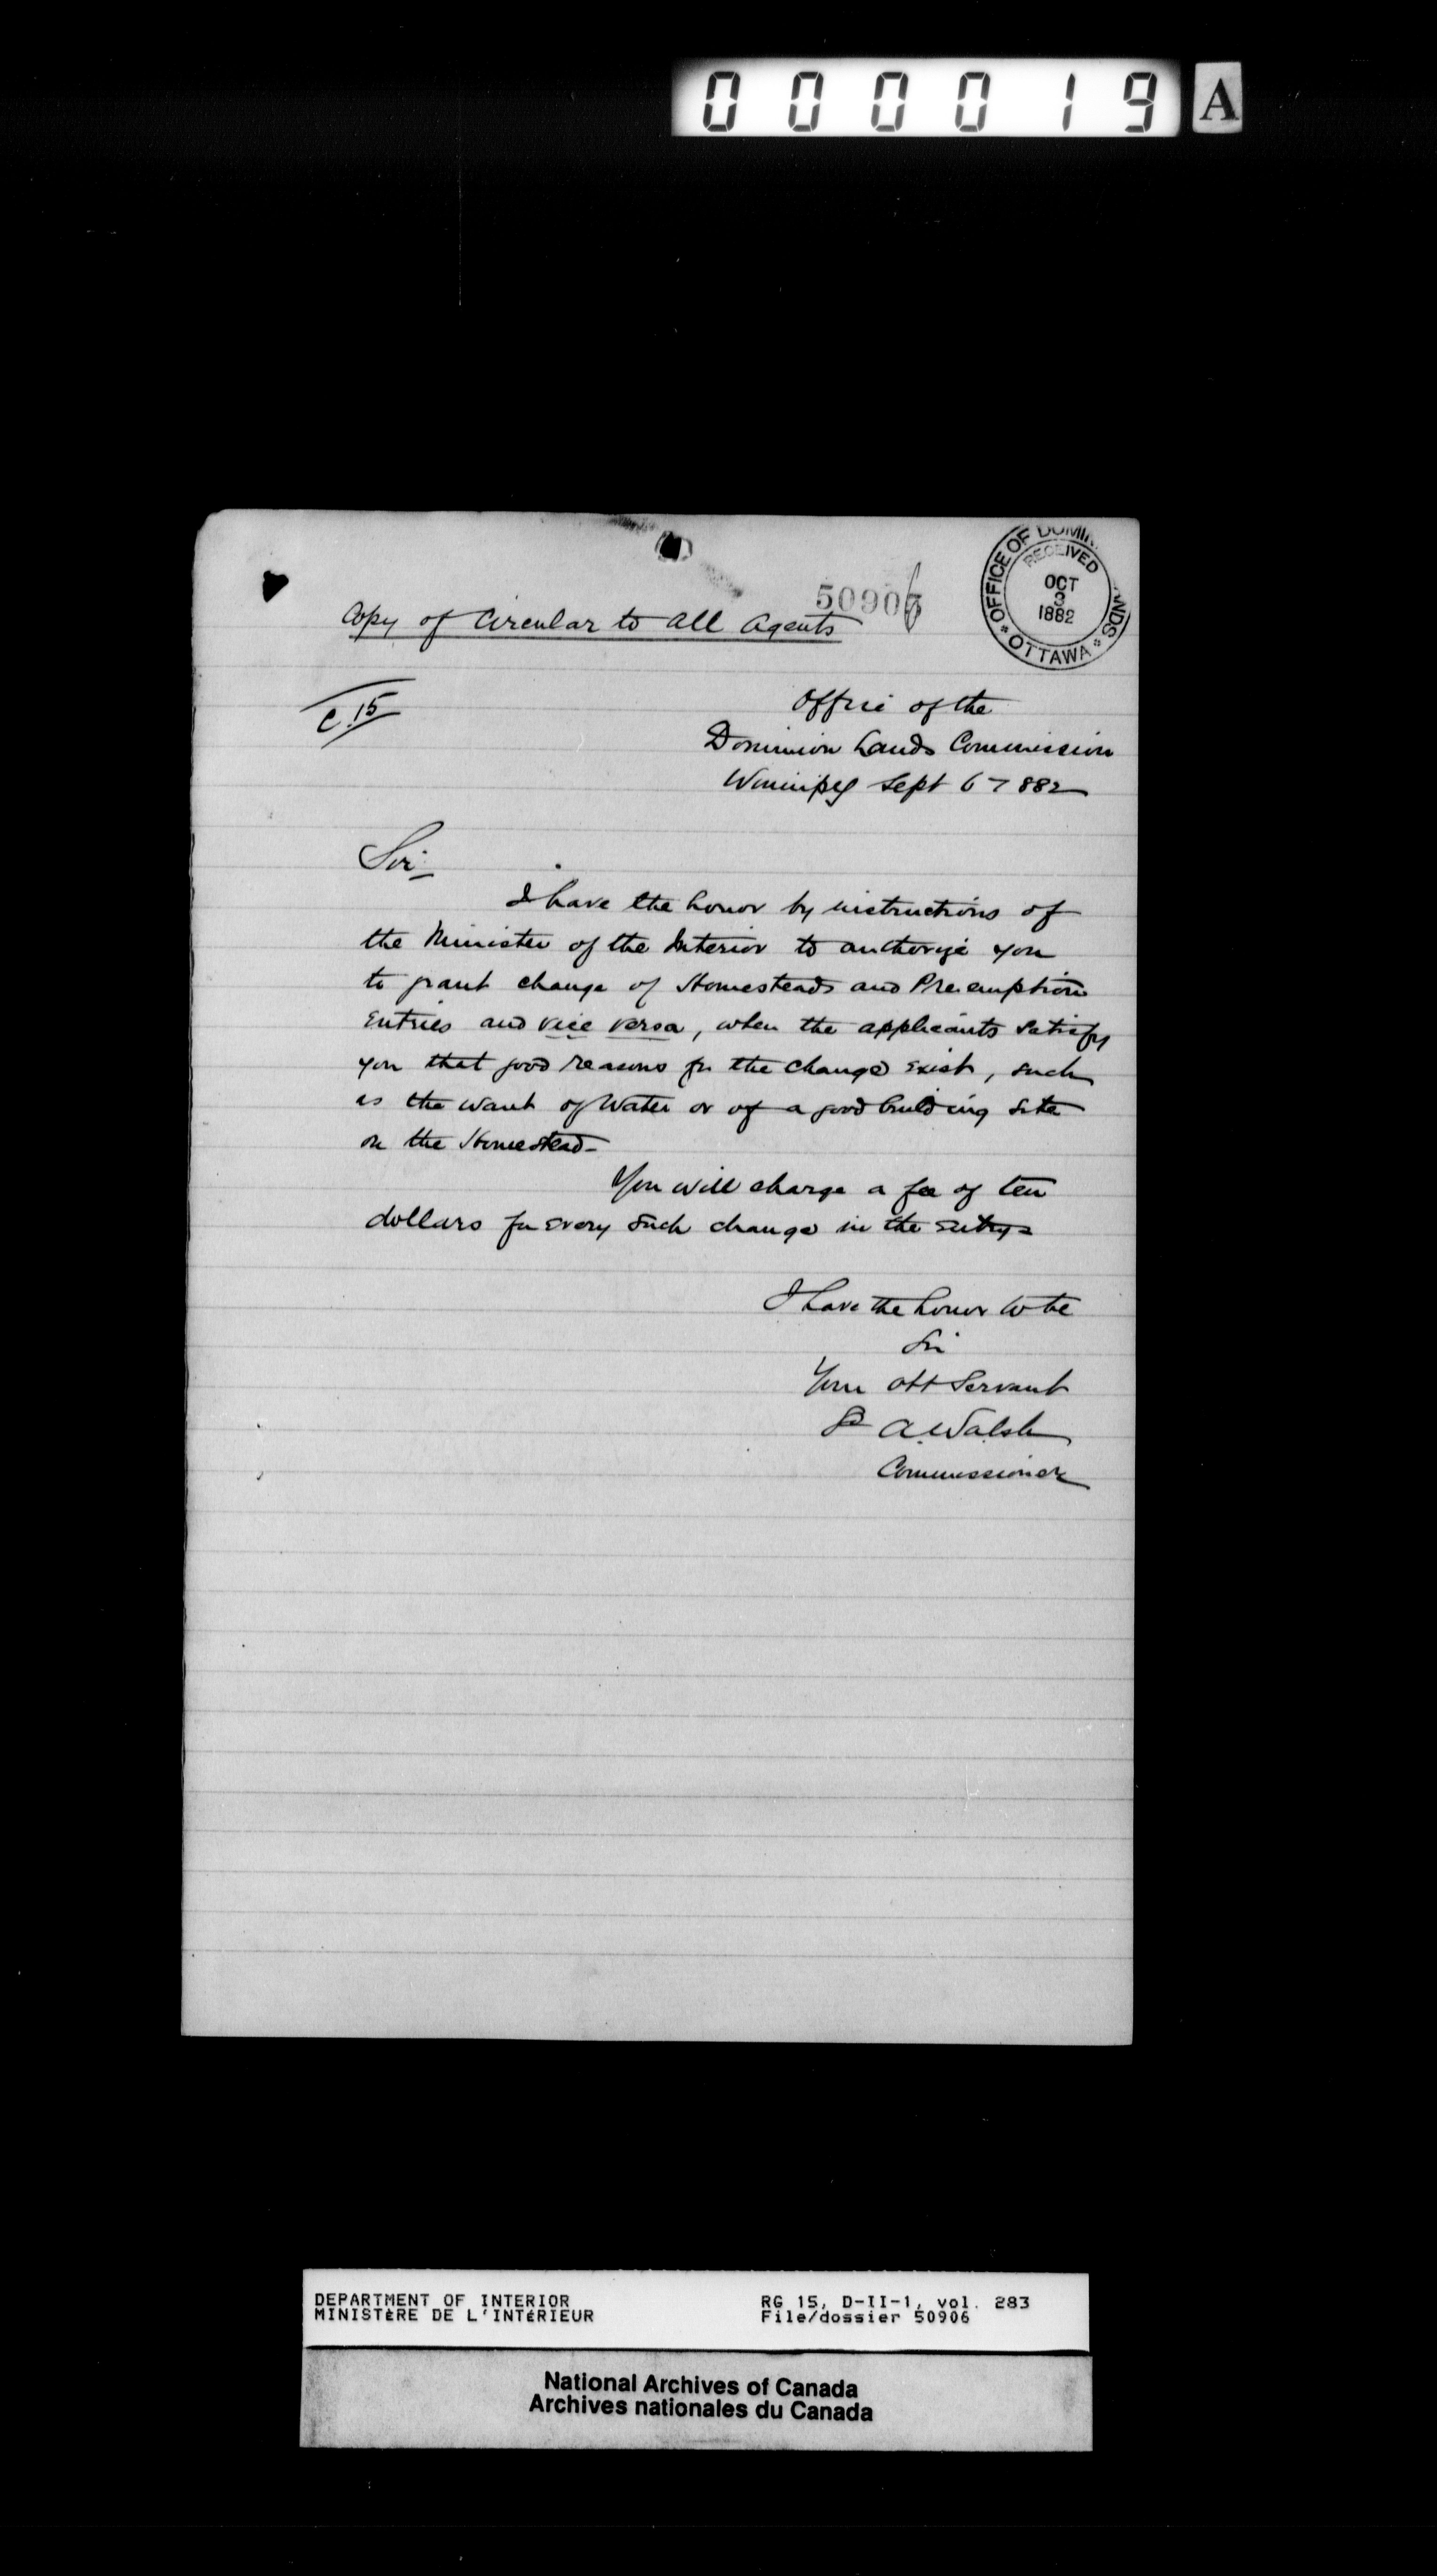 000019 A
50906
OFFICE OF DOMIN
RECEIVED
OCT
3
1882
ANDS
OTTAWA
Copy of Circular to all Agents
C.15
Office of the
Dominion Lands Commission
Winnipeg Sept 6 1882
Sir
I have the honor by instructions of
the Minister of the Interior to authorize you
to grant change of Homesteads and Pre.emption
Entries and vice versa, when the applicants satisfy
you that good reasons for the change exist, such
as the want of Water or of a good building site
on the Homestead-
You will charge a fee of ten
dollars for every such change in the entry-
I have the honor to be
Sir
Your obt Servant
A. Walsh
Commissioner
DEPARTMENT OF INTERIOR
MINISTÈRE DE L'INTÉRIEUR
RG 15, D-II-1, vol. 283
File/dossier 50906
National Archives of Canada
Archives nationales du Canada